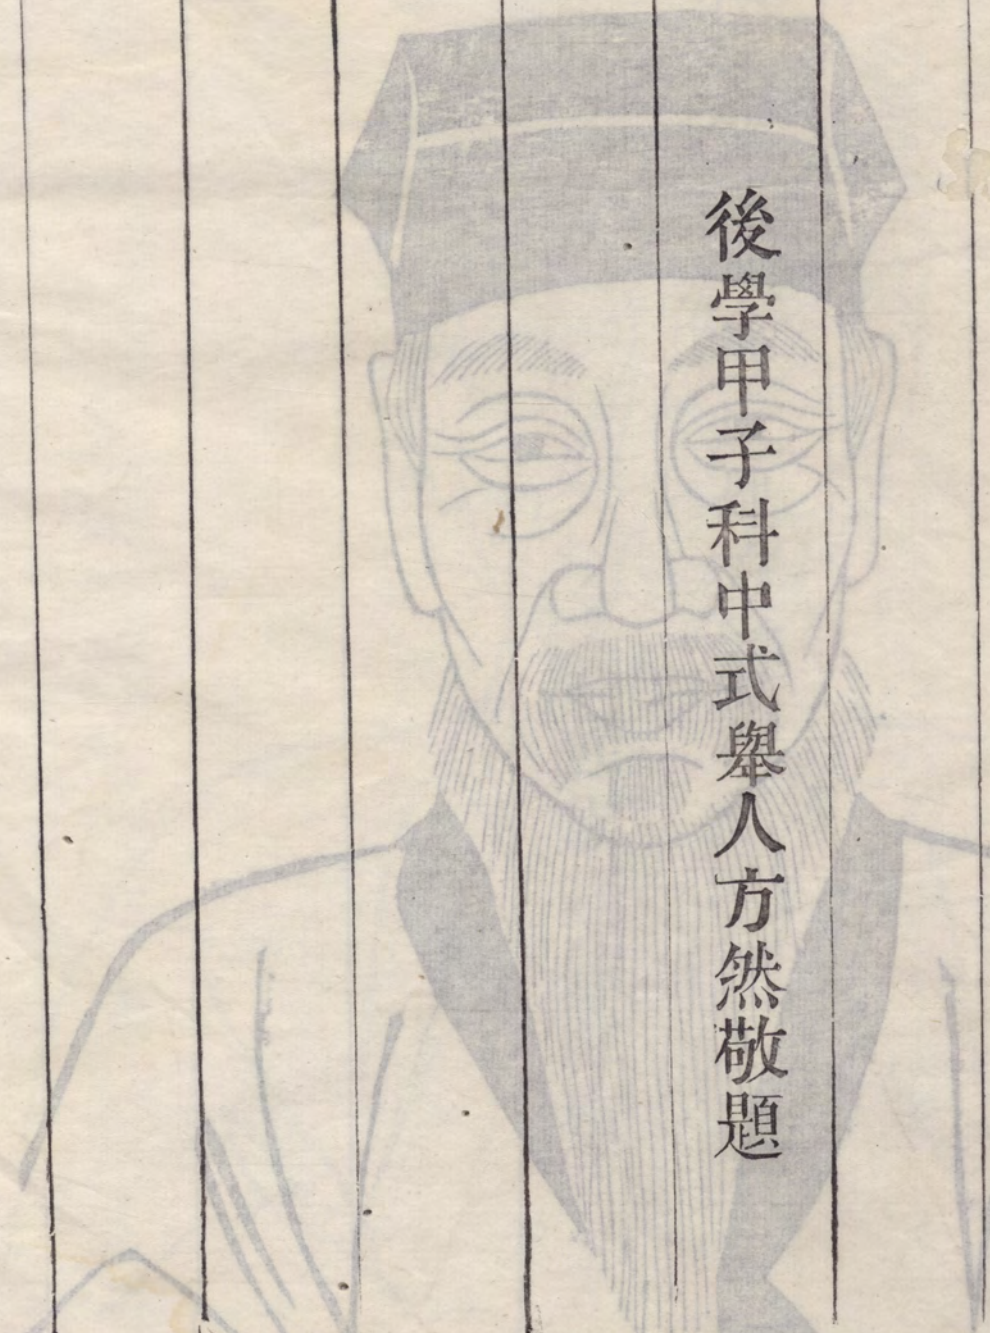 後學甲子科中式舉人方然敬題